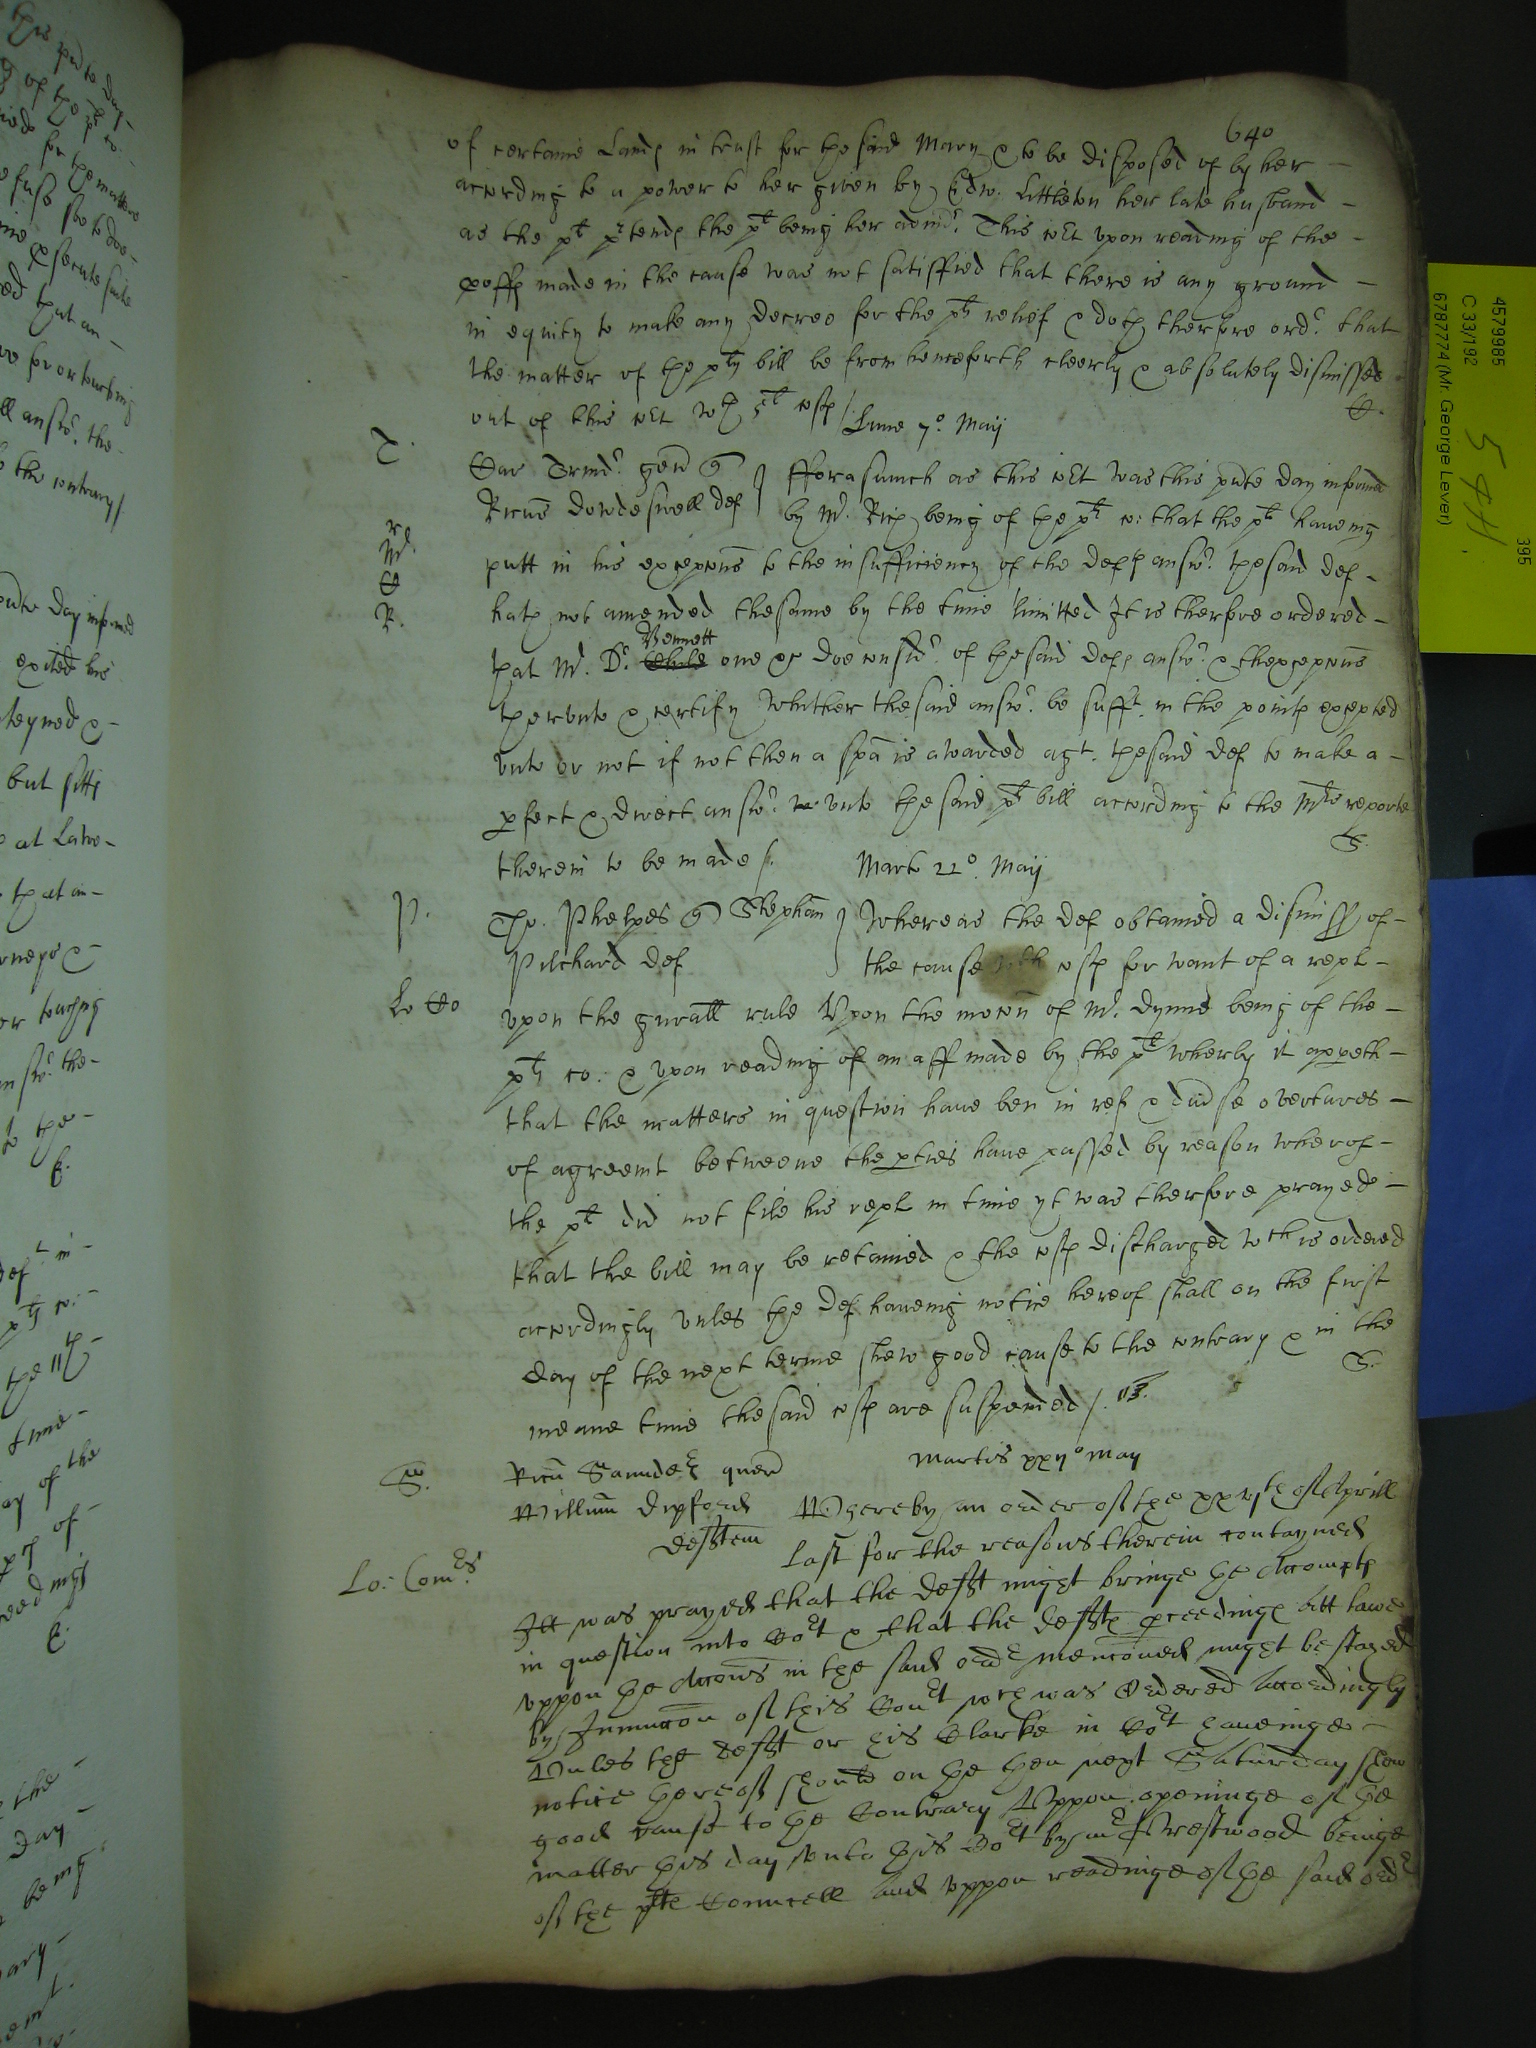 640
of certaine Land in trust for the said Mary & to be disposed of by her
according to a power to her given by Edw. Littleton her late husband
as the plt ptends the plt being her admr. This Ct upon reading of the
proffs made in the cause was not satisffied that there is any ground
in equity to make any decree for the plts relief & doth therfore ordr that
the matter of the plts bill be from henceforth cleerly & absolutely dismissed
out of this Ct wth costs / Lune 7o Maij
Ricus Dowdeswell def
fforasmuch as this Ct was this pnte day informed
by Mr. Rich being of the plts co: that the plt haveing
putt in his excepcons to the insufficiency of the defts answr. the said def
hath not amended the same by the time limitted It is therfore ordered
Bennett
that Mr. Dr. one &c doe considr. of the said defts answr. & thexcepcons
thervnto & certify whither the said answr. be sufft. in the points excepted
vnto or not if not then a spa is awarded agt. the said def to make a
pfect & direct answr. vnto the said plts bill according to the Mrs reporte
S.
therein to be made /.
Mart 22o. Maij
P.
Tho. Phelpes Stephan
Pilchard def
Whereas the def obtained a dismiss of
the cause wth costs for want of a repl
upon the gnrall rule Vpon the mocon of Mr. Dynne being of the
plts co: & upon reading of an aff made by the plt wherby it appeth
that the matters in question have ben in ref & divse overtures
of agreemt betweene the pties have passed by reason wherof
the plt did not file his repl in time yt was therfore prayed
that the bill may be retained & the costs discharged wch is ordered
accordingly vnles the def haveing notice hereof shall on the first
day of the next terme shew good cause to the contrary & in the
S.
meane time the said costs are suspended /.
Martis xxijo may
Willim Dipford
defftem
Whereby an order of the xxvjth of Aprill
last for the reasons therein contayned
Lo: Comrs.
Itt was prayed that the defft might bringe the Accompts
in question into Cort & that the deffts pceedings att lawe
vppon the Accons in the said ordr mencioned might be stayed
by Iniunccon of this Court wch was Ordered Accordingly
Vnles the defft or his Clarke in Cort haueinge
notice hereof should on the then next Saturday shew
good cause to the Contrary Vppon openinge of the
matter this day vnto this Cort by mr Prestwood beinge
of the plts Councell and vppon readinge of the said ordr
4579985
C 33/192
6787774 (Mr. George Lever)
395